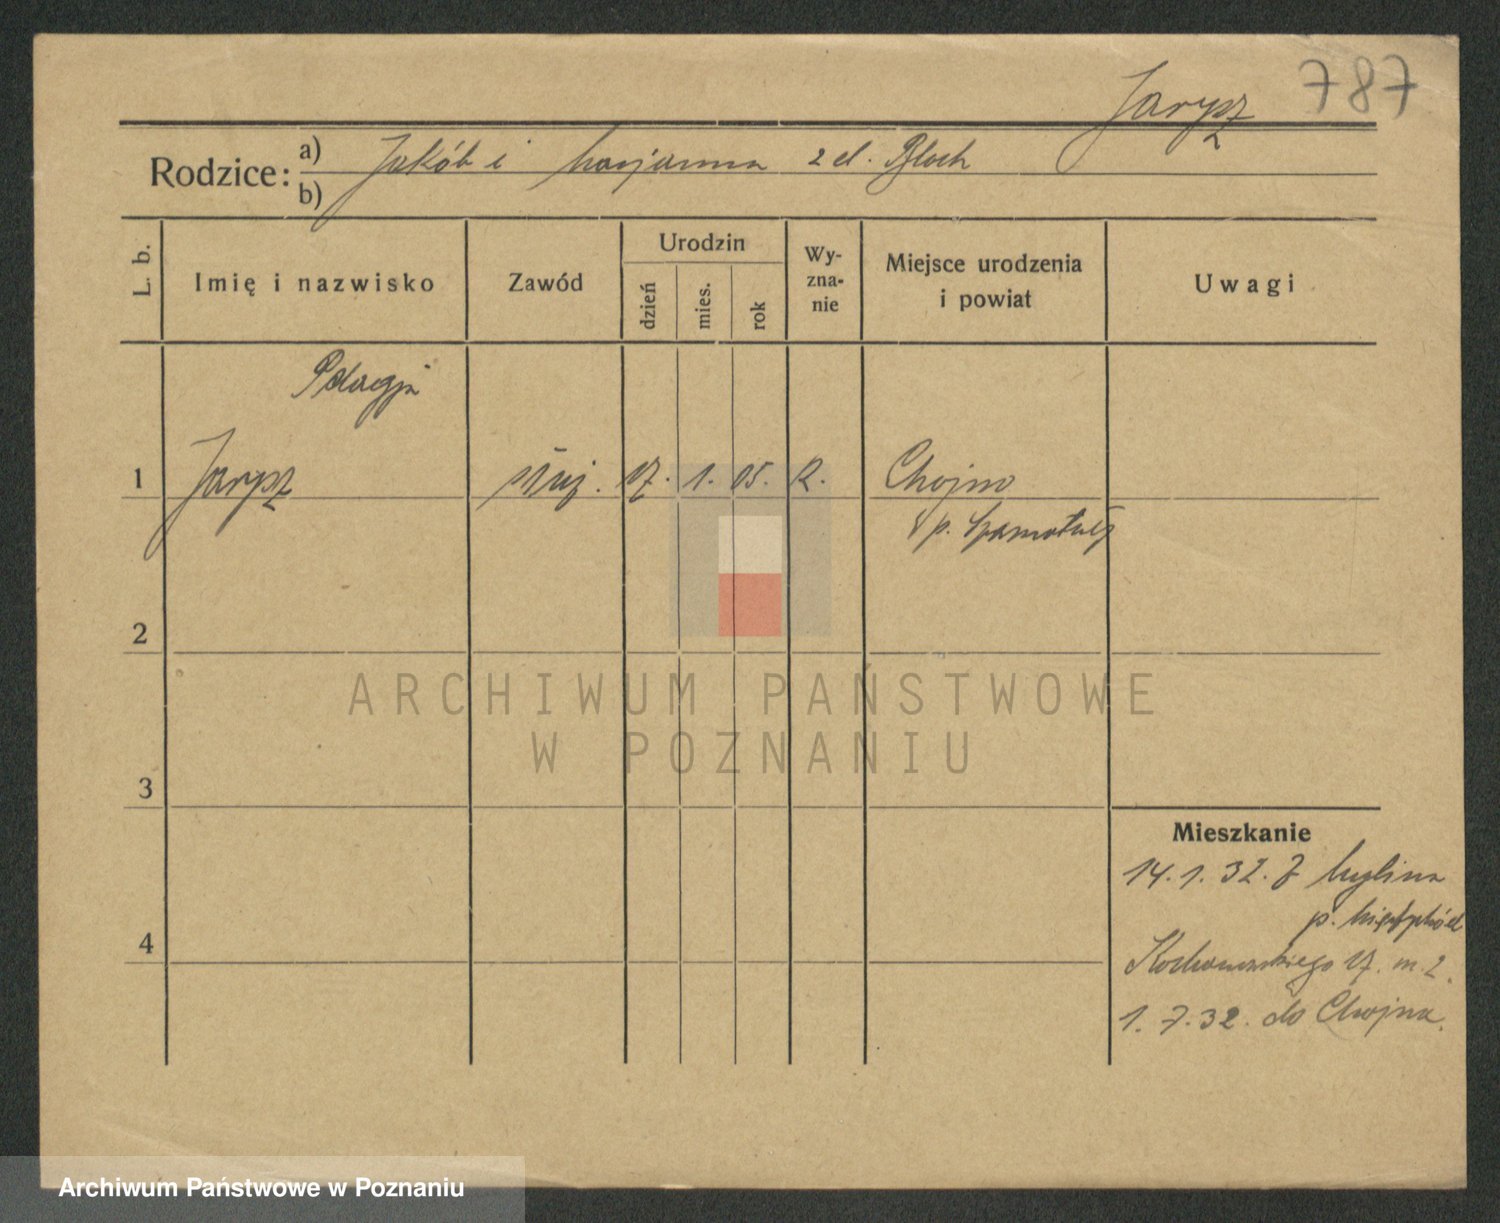 787
Jarysz
Rodzice:
a) Jakób i Marjanna z d. Bloch
b)
L. b.
Imię i nazwisko
Zawód
Urodzin
dzień
mies.
rok
Wy-
zna-
nie
Miejsce urodzenia
i powiat
Uwagi
Pelagja
1 Jarysz służ. 17. 1. 05. R. Chojno
p. Szamotuły
2
3
4
ARCHIWUM PAŃSTWOWE
W POZNANIU
Mieszkanie
14.1.32. z Mylina
p. Międzychód
Kochanowskiego 17. m. 2.
1.7.32. do Chojna.
Archiwum Państwowe w Poznaniu